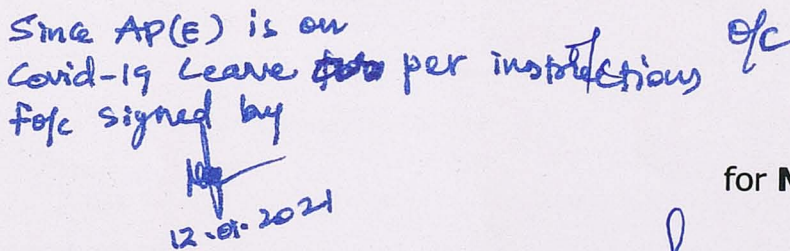 Since AP(E) is on
Covid-19 Leave per instructions
Fo/c signed by
12.01.2021
o/c
for